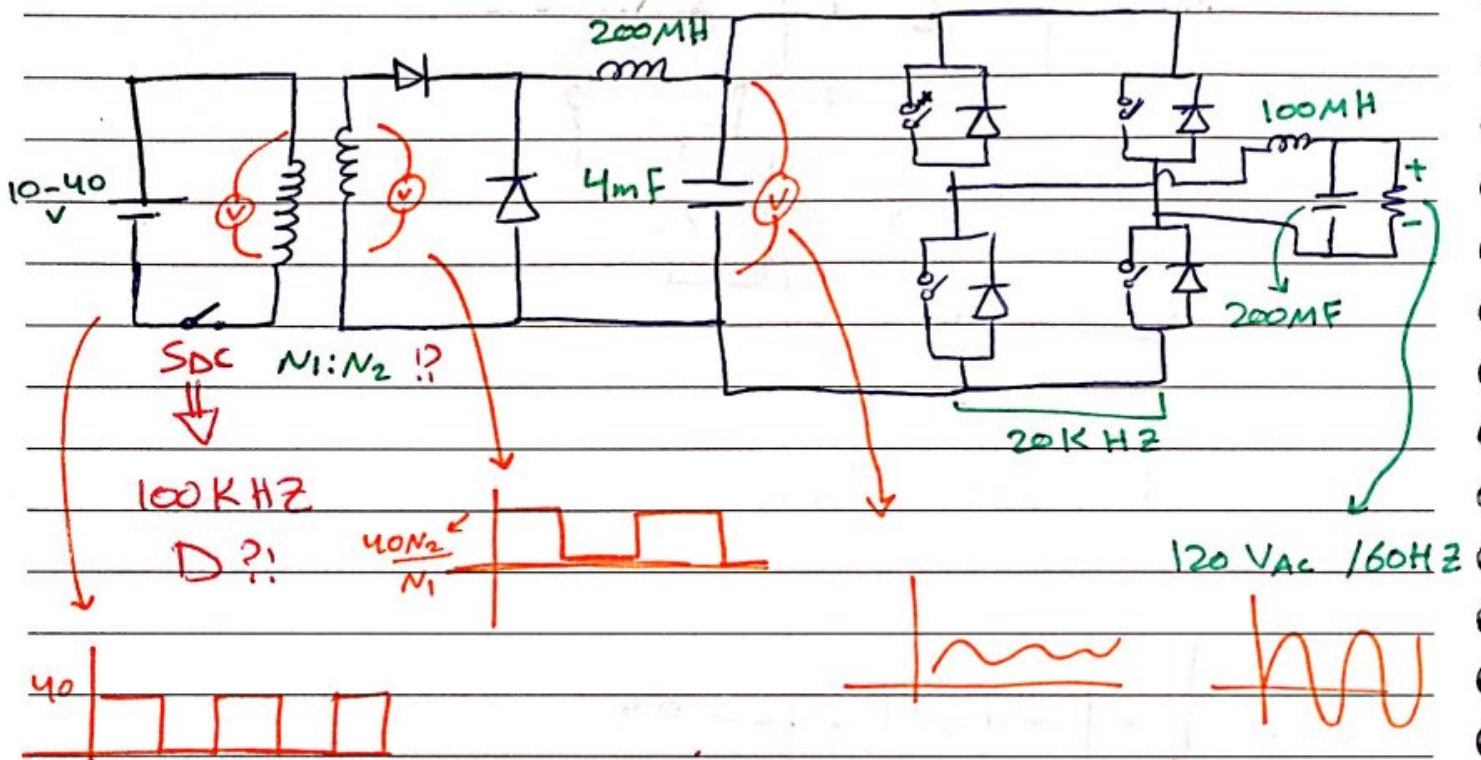 200MH
100MH
10-40
V
V
V
4mF
V
+
-
200MF
SDC N1:N2 !?
20KHZ
100KHZ
D ?!
40N2
N1
120 VAC /60HZ
40